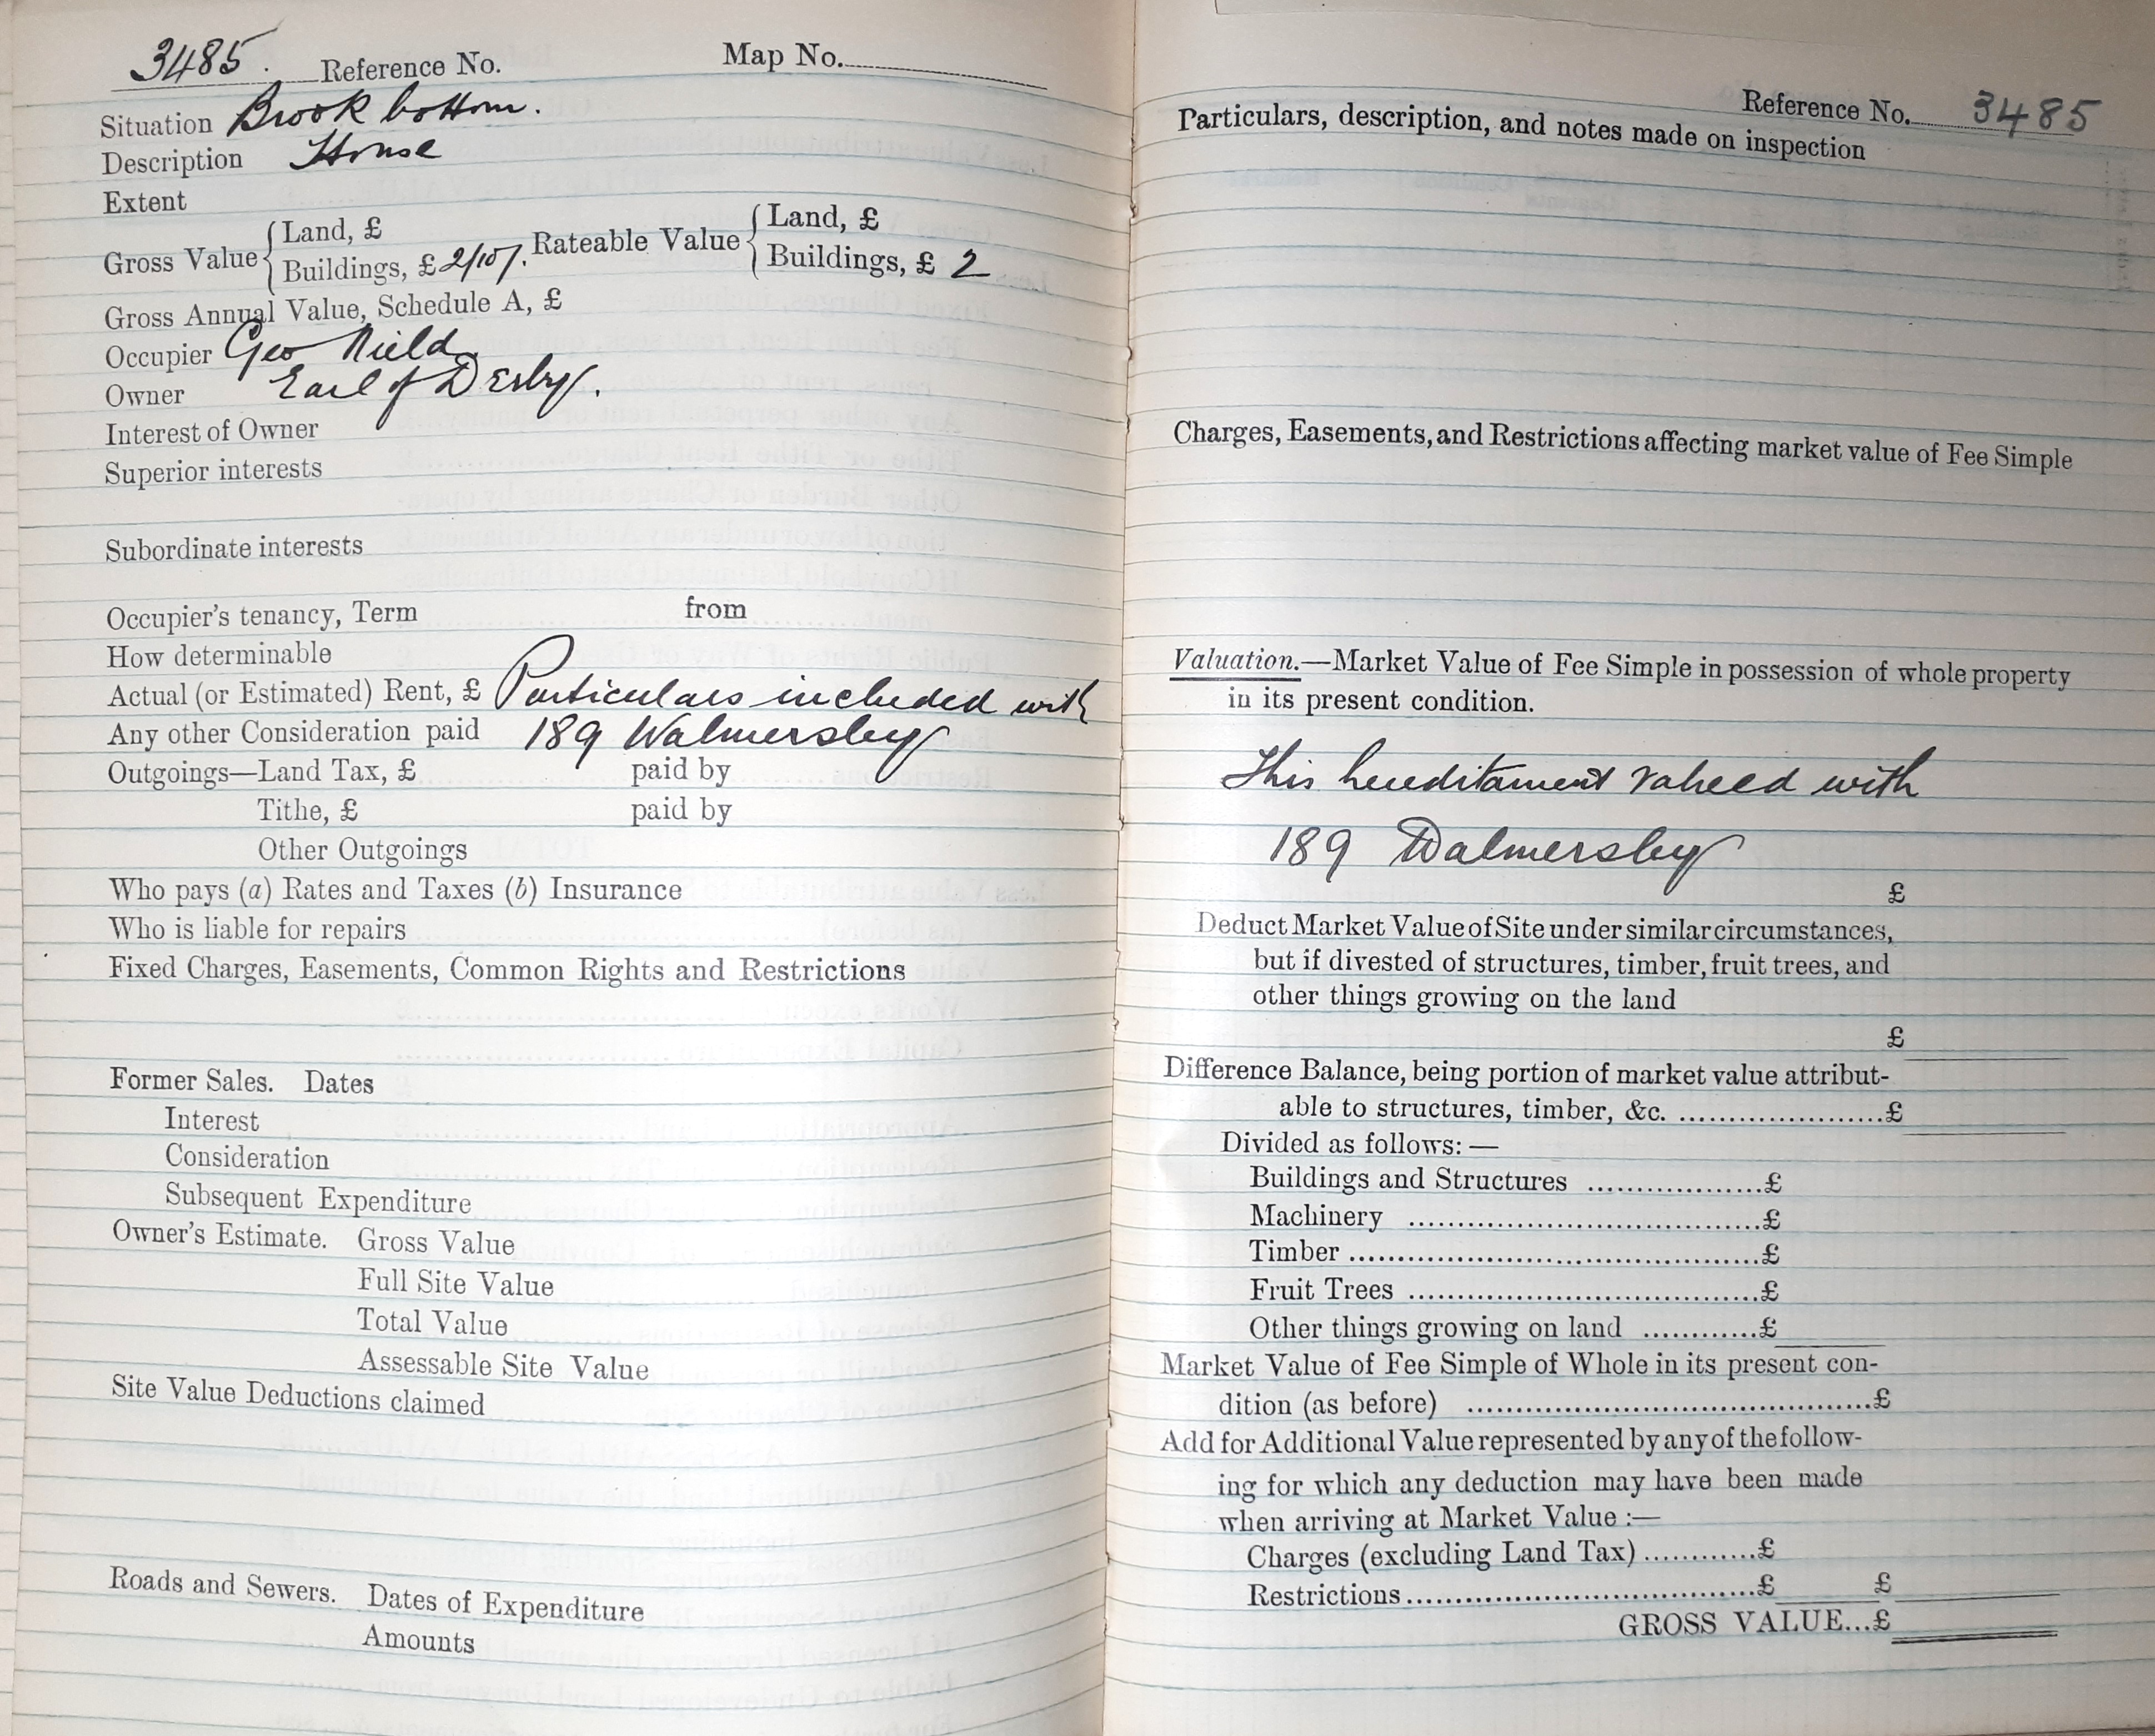 3485. Reference No. Map No.
Situation Brook bottom.
Description House
Extent
Gross Value { Land, £
Buildings, £ 2/10/. Rateable Value { Land, £
Buildings, £ 2
Gross Annual Value, Schedule A, £
Occupier Geo Nield
Owner Earl of Derby.
Interest of Owner
Superior interests
Subordinate interests
Occupier's tenancy, Term from
How determinable
Actual (or Estimated) Rent, £ Particulars included with
Any other Consideration paid 189 Walmersley
Outgoings—Land Tax, £ paid by
Tithe, £ paid by
Other Outgoings
Who pays (a) Rates and Taxes (b) Insurance
Who is liable for repairs
Fixed Charges, Easements, Common Rights and Restrictions
Former Sales. Dates
Interest
Consideration
Subsequent Expenditure
Owner's Estimate. Gross Value
Full Site Value
Total Value
Assessable Site Value
Site Value Deductions claimed
Roads and Sewers. Dates of Expenditure
Amounts
Reference No. 3485
Particulars, description, and notes made on inspection
Charges, Easements, and Restrictions affecting market value of Fee Simple
Valuation.—Market Value of Fee Simple in possession of whole property
in its present condition.
This hereditament valued with
189 Walmersley
£
Deduct Market Value of Site under similar circumstances,
but if divested of structures, timber, fruit trees, and
other things growing on the land
£
Difference Balance, being portion of market value attribut-
able to structures, timber, &c. ......................£
Divided as follows:—
Buildings and Structures ...................£
Machinery ......................................£
Timber ............................................£
Fruit Trees ......................................£
Other things growing on land ............£
Market Value of Fee Simple of Whole in its present con-
dition (as before) ............................................£
Add for Additional Value represented by any of the follow-
ing for which any deduction may have been made
when arriving at Market Value :—
Charges (excluding Land Tax) ............£
Restrictions ......................................£ £
GROSS VALUE...£